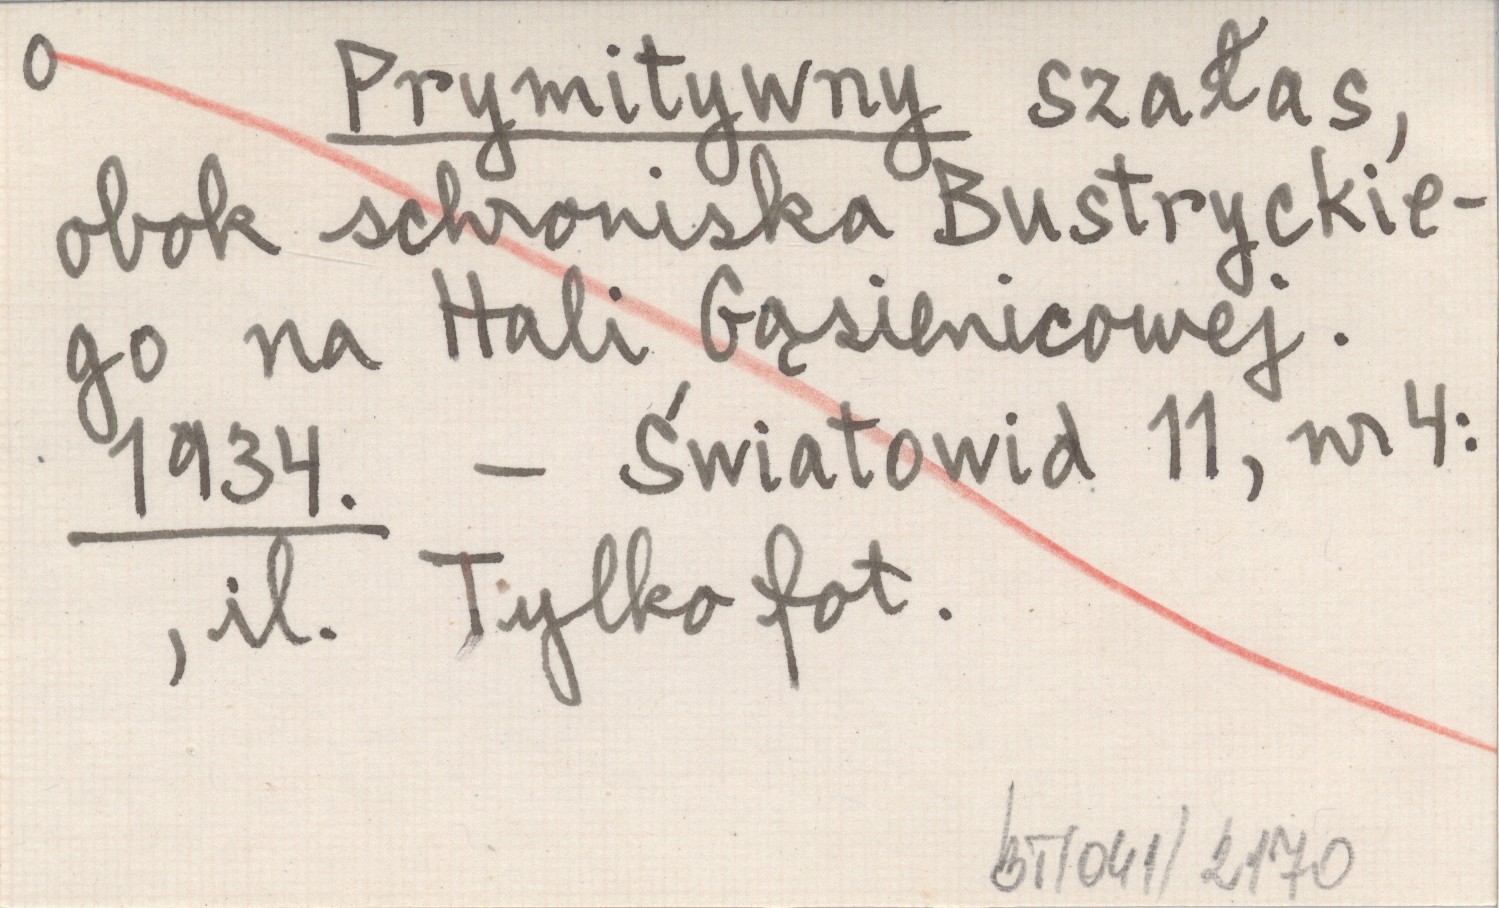 O Prymitywny szałas,
obok schroniska Bustryckie-
go na Hali Gąsienicowej.
1934. — Światowid 11, nr 4:
, il. Tylko fot.
BT/041/2170